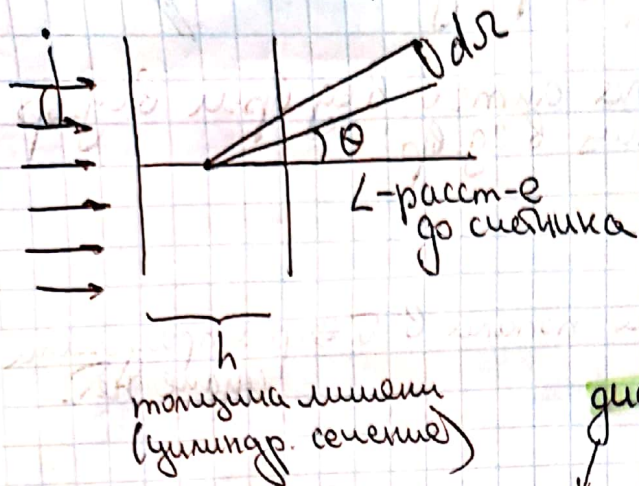 dΩ
θ
L-расст-е
до счётчика
h
толщина мишени
(цилиндр. сечение)
ди